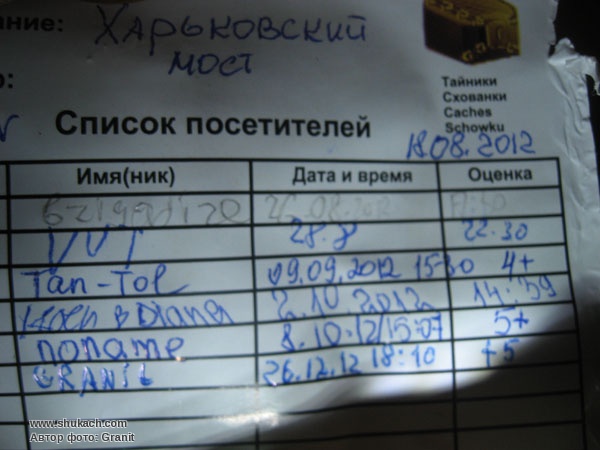 ание: Харьковский
мост
Тайники
Схованки
Caches
Schowku
Список посетителей
18.08.2012
Имя(ник) Дата и время Оценка
26.08.2012
VVT 28.8 22.30
Tan-Tol 09.09.2012 15-30 4+
Diana 2.10.2012 14:59
noname 8.10.12/15:07 5+
GRANIt 26.12.12 18:10 +5
www.shukach.com
Автор фото: Granit